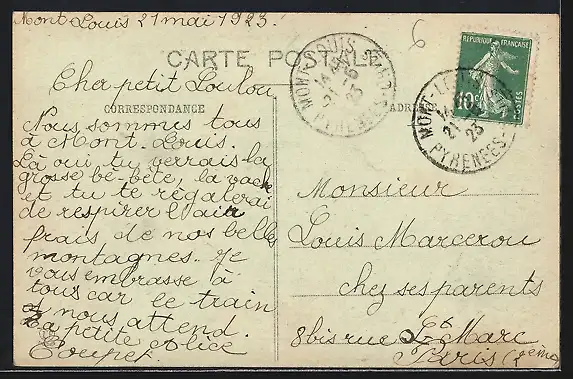 Mont Louis 21 mai 1923.
CARTE POSTALE
6
Cher petit Loulou
CORRESPONDANCE
Nous sommes tous
à Mont. Louis.
Là où, tu verrais la
grosse bê-bête, la vache
et tu te régalerai
de respirer l'air
frais de nos belles
montagnes. Je
vous embrasse à
tous car le train
nous attend.
La petite Alice
MONT-LOUIS
PYRENEES
REPUBLIQUE FRANÇAISE
10
POSTES
MONT-LOUIS
23
PYRENEES
ADRESSE
Monsieur
Louis Marcerou
chez ses parents
8bis rue St Marc
Paris